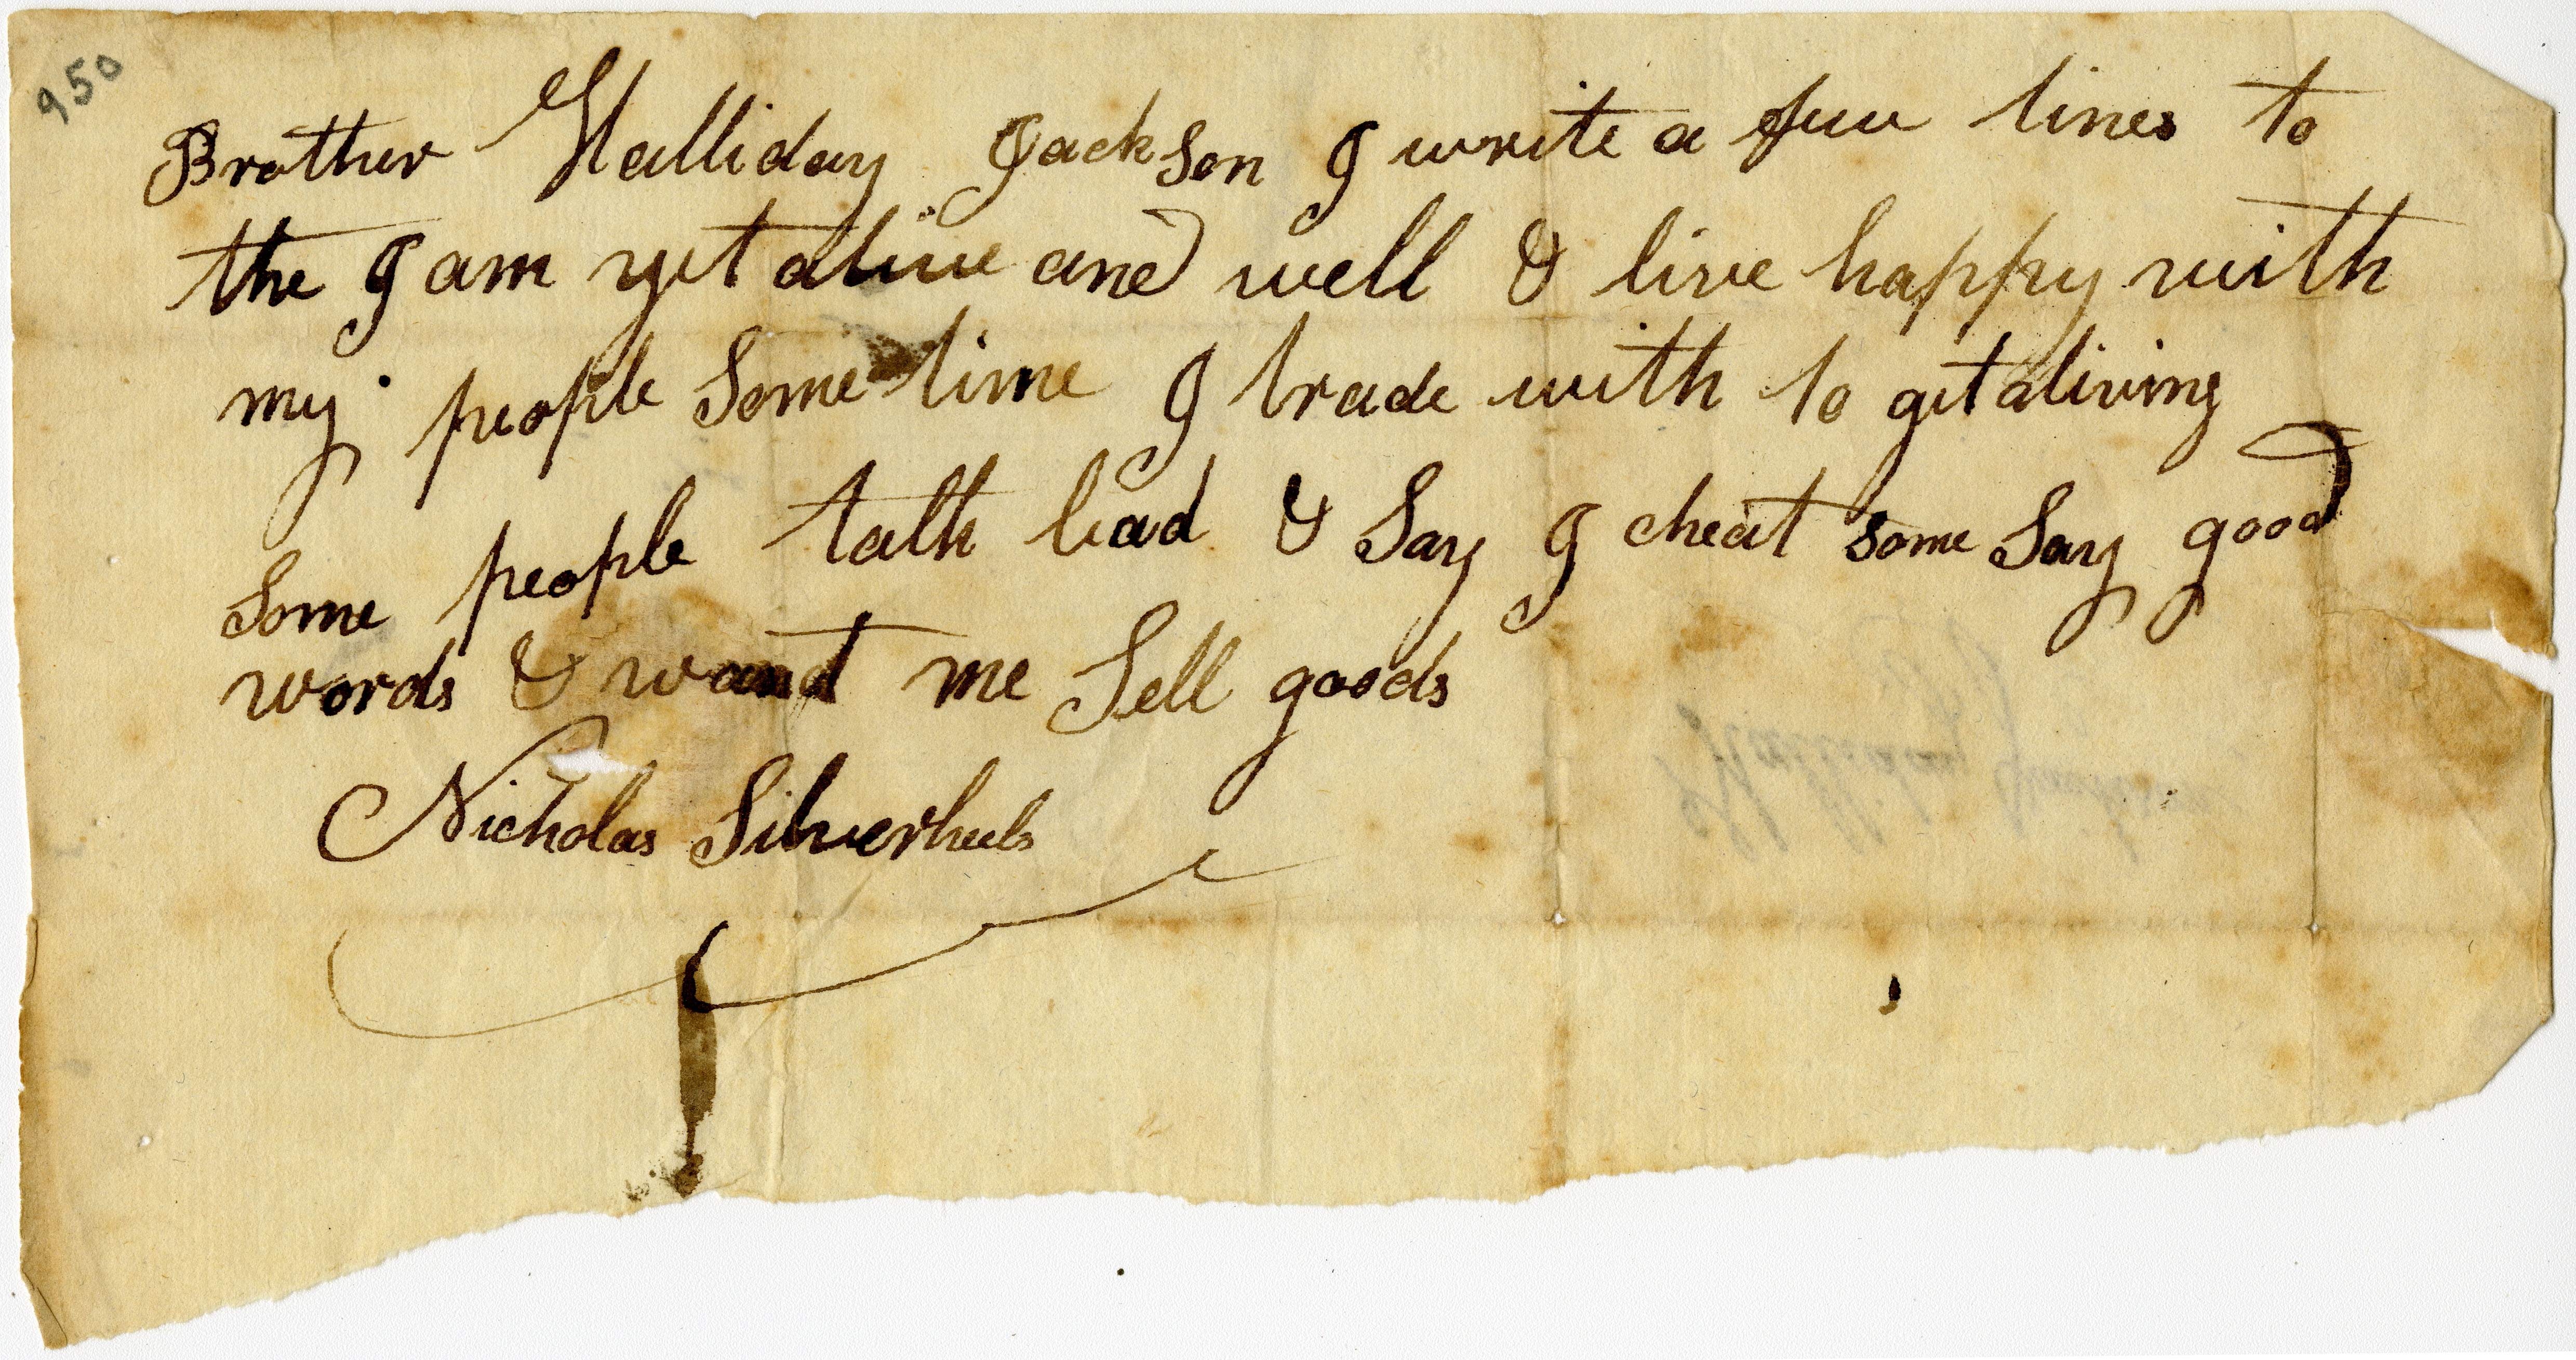 950
Brother Halliday Jackson I write a few lines to
the I am yet alive and well & live happy with
my people Some time I trade with to get a living
Some people talk bad & Say I cheat some Say good
words & want me Sell goods
Nicholas Silverheels
Halliday Jackson